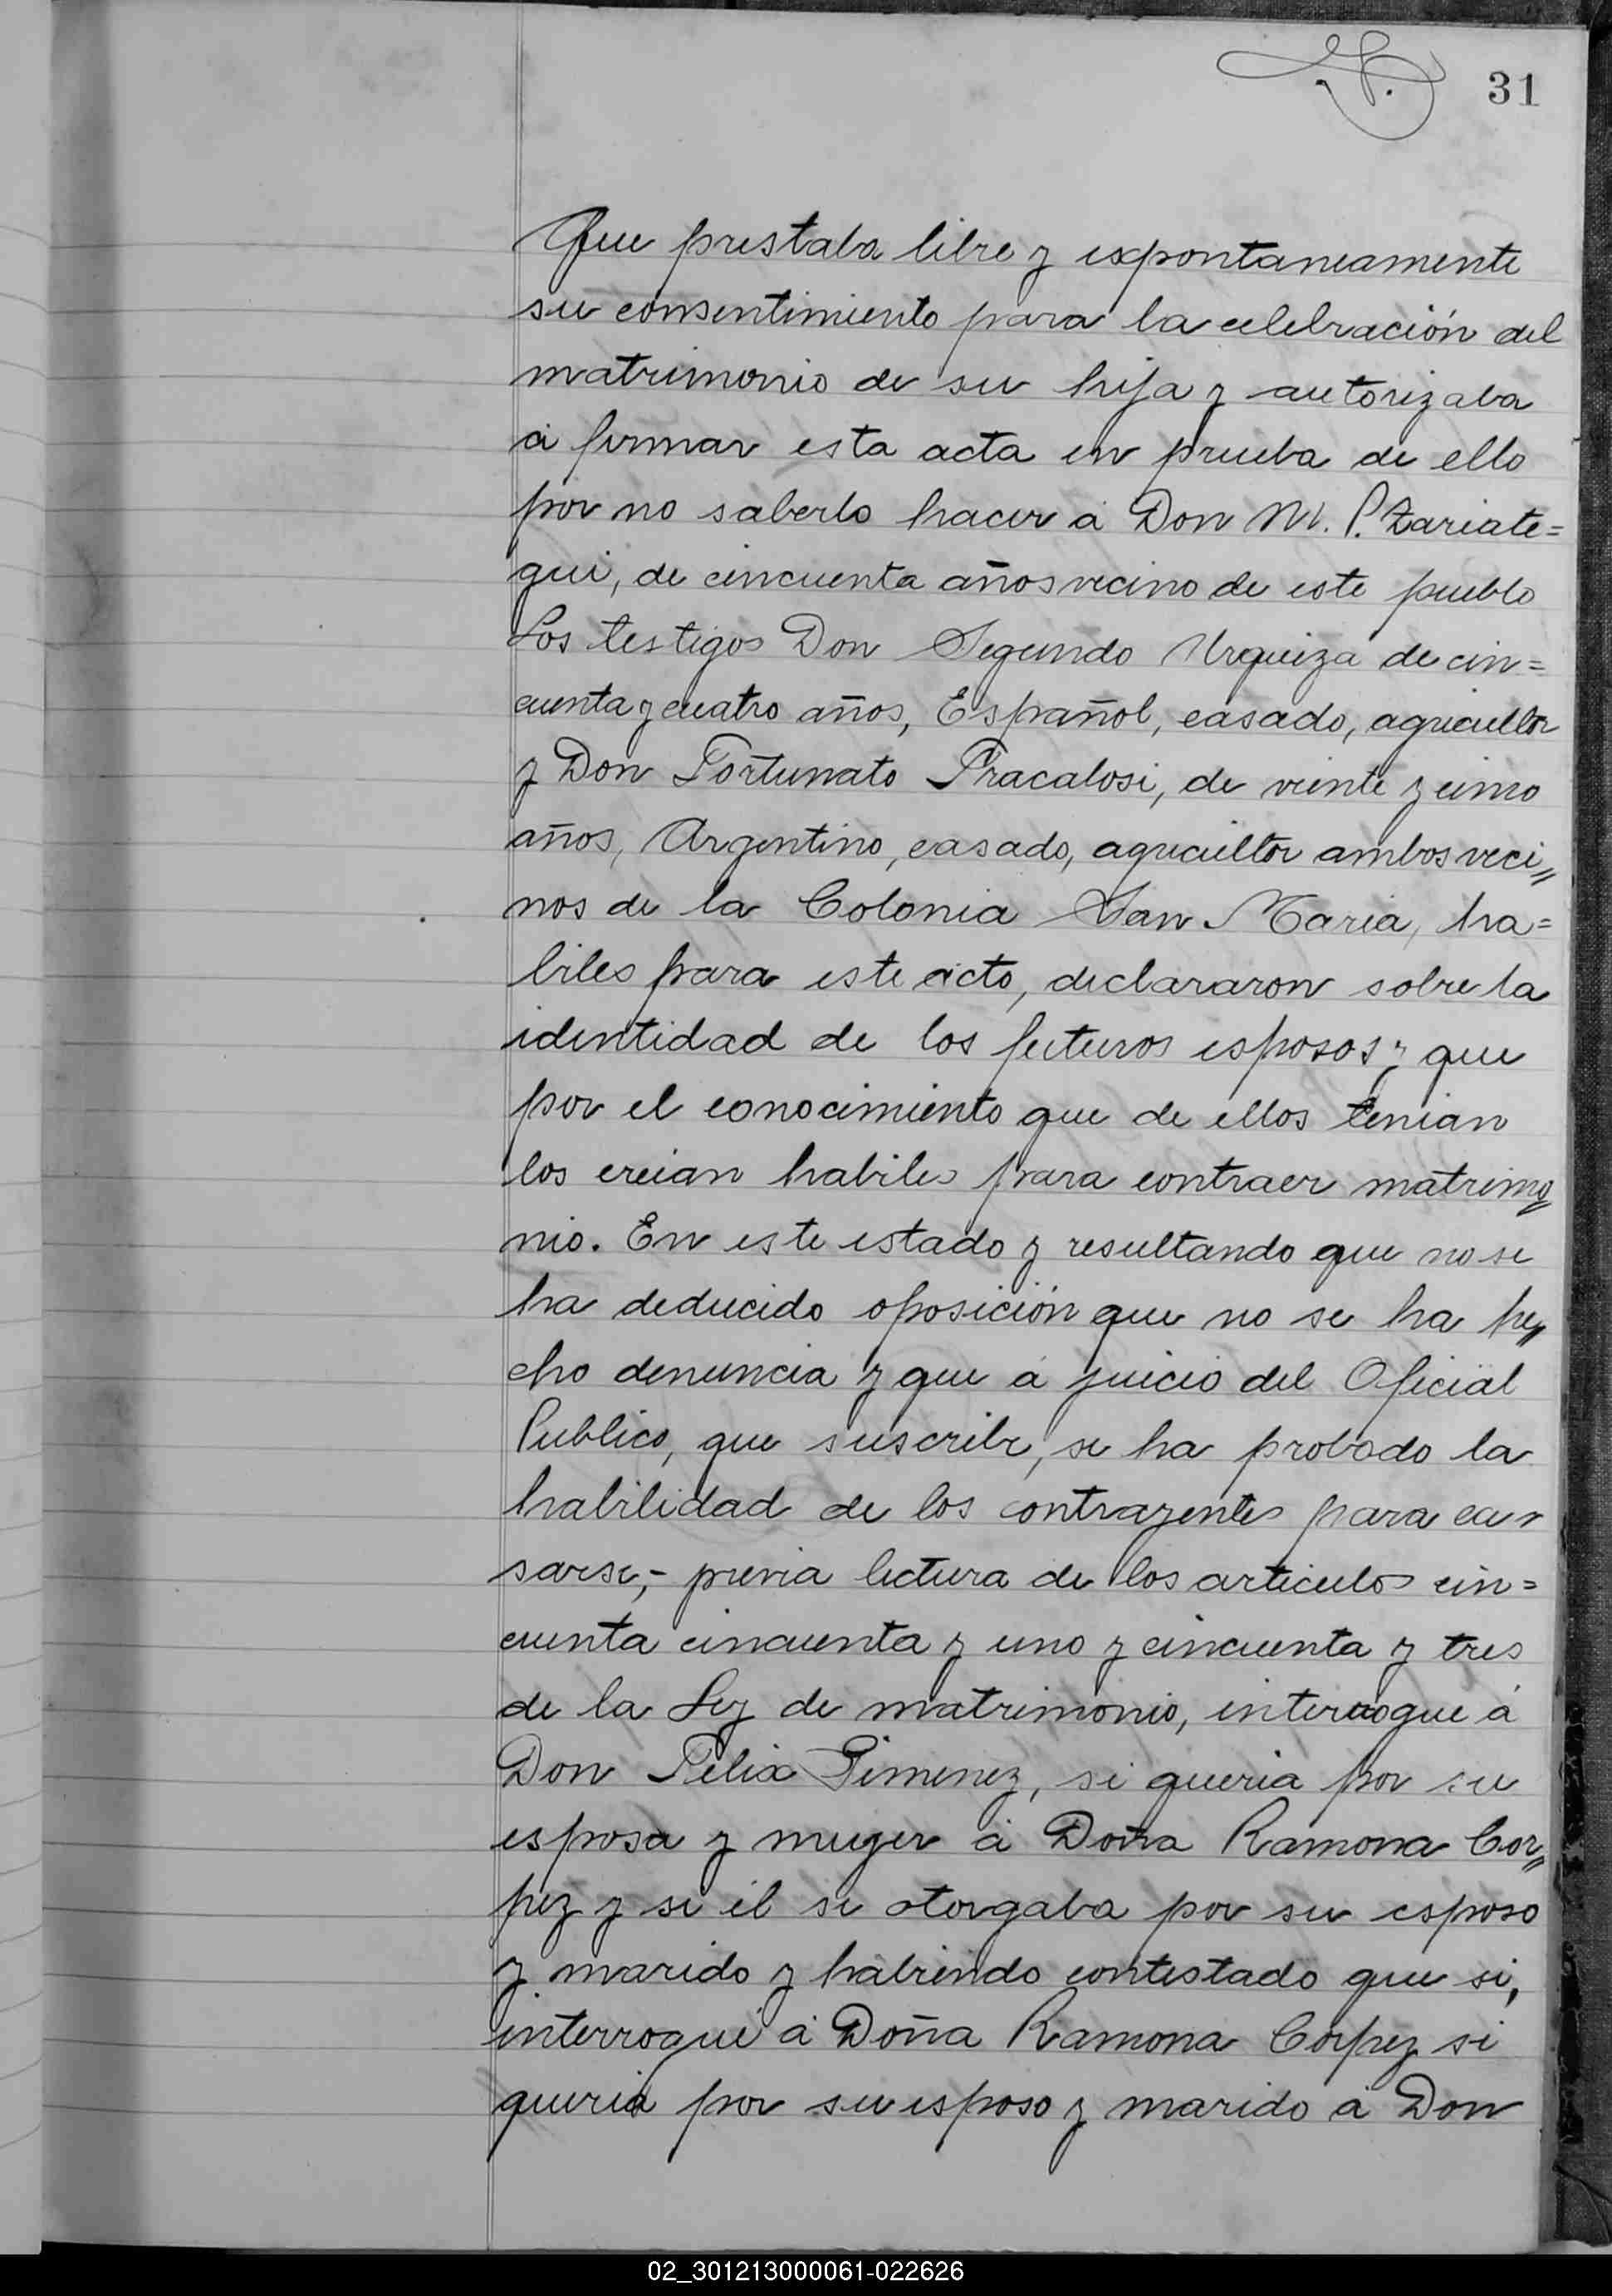 31
Que prestaba libre y expontaneamente
su consentimiento para la celebración del
matrimonio de su hija y autorizaba
á firmar esta acta en prueba de ello
por no saberlo hacer á Don M. P. Zariate=
gui, de cincuenta años vecino de este pueblo
Los testigos Don Segundo Urquiza de cin=
cuenta y cuatro años, Español, casado, agricultor
y Don Fortunato Fracalosi, de veinte y cinco
años, Argentino, casado, agricultor ambos veci"
nos de la Colonia San Maria, ha=
biles para este acto, declararon sobre la
identidad de los futuros esposos y que
por el conocimiento que de ellos tenian
los creian habiles para contraer matrimo"
nio. En este estado y resultando que no se
ha deducido oposición que no se ha he"
cho denuncia y que á juicio del Oficial
Publico, que suscribe, se ha probado la
habilidad de los contrayentes para ca-
sarse,- previa lectura de los articulos cin=
cuenta cincuenta y uno y cincuenta y tres
de la Ley de matrimonio, interrogue á
Don Felix Gimenez, si queria por su
esposa y muger á Doña Ramona Cor"
pez y si él se otorgaba por su esposo
y marido y habiendo contestado que si,
interrogué á Doña Ramona Corpez si
queria por su esposo y marido á Don
02_301213000061-022626